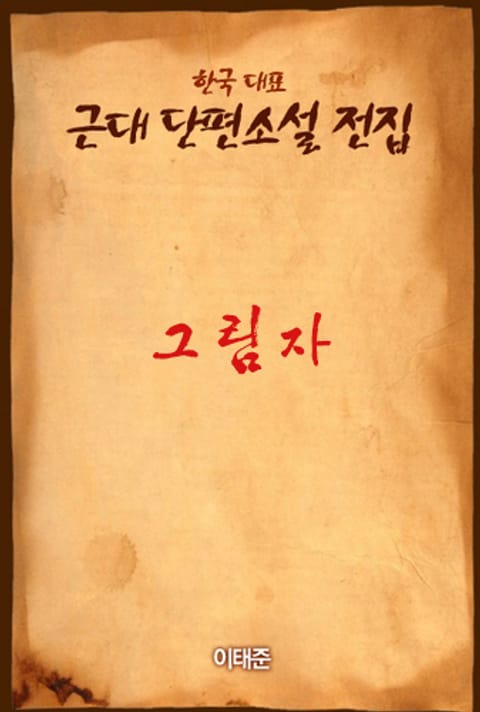 한국 대표
근대 단편소설 전집
그림자
이태준